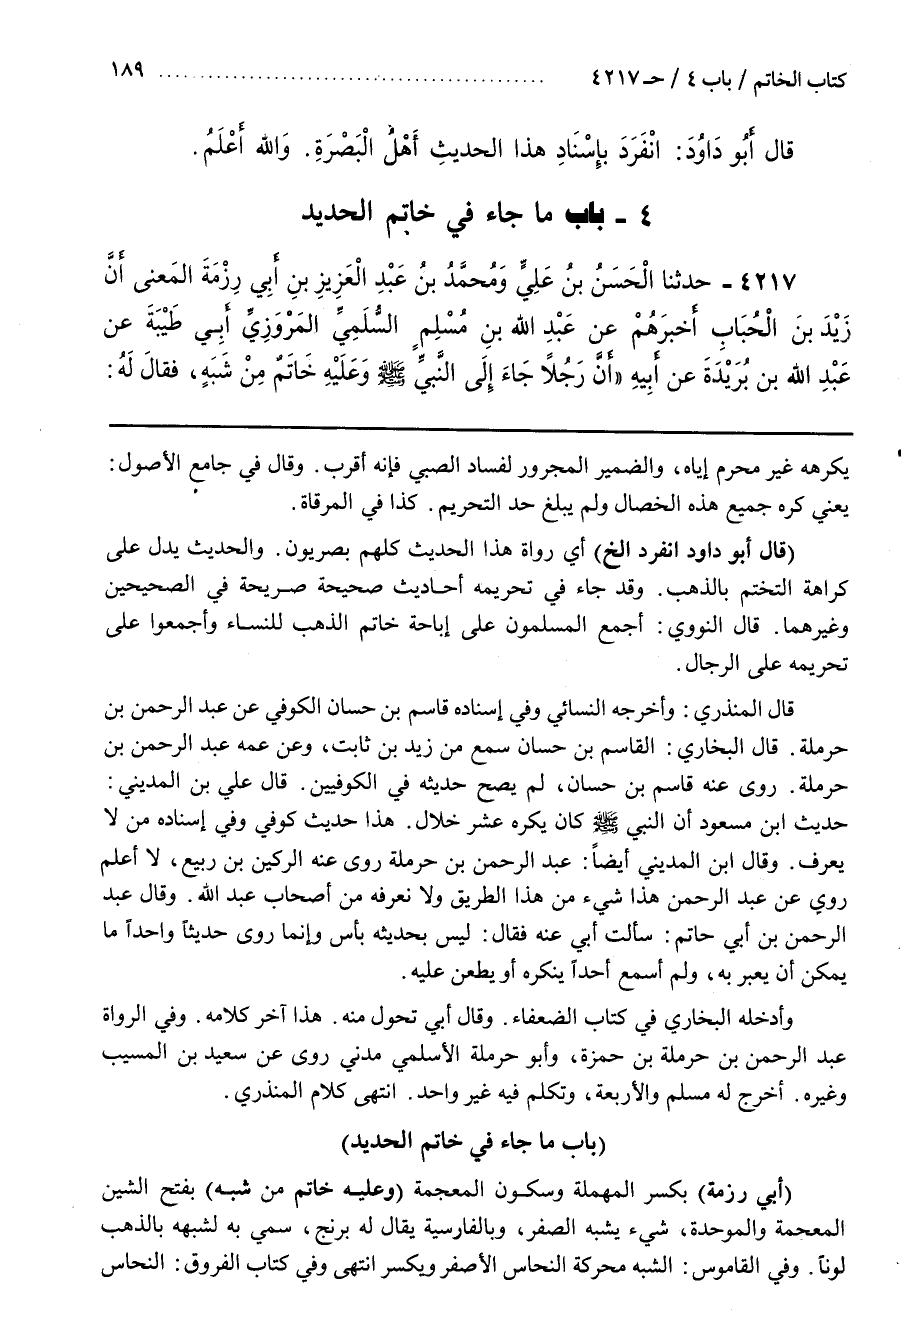 كتاب الخاتم / باب ٤ / حـ ٤٢١٧ ................................................ ١٨٩
قال أَبُو دَاوُدَ: انْفَرَدَ بإِسْنَادِ هذا الحديثِ أَهْلُ الْبَصْرَةِ. وَالله أَعْلَمُ.
٤ ـ باب ما جاء في خاتم الحديد
٤٢١٧ ـ حدثنا الْحَسَنُ بنُ عَلِيٍّ وَمُحمَّدُ بنُ عَبْدِ الْعَزِيزِ بنِ أَبي رِزْمَةَ المَعنى أَنَّ
زَيْدَ بنَ الْحُبَابِ أَخبرَهُمْ عن عَبْدِ الله بنِ مُسْلِمٍ السُّلَمِيِّ المَرْوَزِيِّ أَبي طَيْبَةَ عن
عَبْدِ الله بن بُرَيْدَةَ عن أَبيهِ «أَنَّ رَجُلاً جَاءَ إِلَى النَّبيِّ ﷺ وَعَلَيْهِ خَاتَمٌ مِنْ شَبَهٍ، فقالَ لَهُ:
يكرهه غير محرم إياه، والضمير المجرور لفساد الصبي فإنه أقرب. وقال في جامع الأصول:
يعني كره جميع هذه الخصال ولم يبلغ حد التحريم. كذا في المرقاة.
(قال أبو داود انفرد الخ) أي رواة هذا الحديث كلهم بصريون. والحديث يدل على
كراهة التختم بالذهب. وقد جاء في تحريمه أحاديث صحيحة صريحة في الصحيحين
وغيرهما. قال النووي: أجمع المسلمون على إباحة خاتم الذهب للنساء وأجمعوا على
تحريمه على الرجال.
قال المنذري: وأخرجه النسائي وفي إسناده قاسم بن حسان الكوفي عن عبد الرحمن بن
حرملة. قال البخاري: القاسم بن حسان سمع من زيد بن ثابت، وعن عمه عبد الرحمن بن
حرملة. روى عنه قاسم بن حسان، لم يصح حديثه في الكوفيين. قال علي بن المديني:
حديث ابن مسعود أن النبي ﷺ كان يكره عشر خلال. هذا حديث كوفي وفي إسناده من لا
يعرف. وقال ابن المديني أيضاً: عبد الرحمن بن حرملة روى عنه الركين بن ربيع، لا أعلم
روي عن عبد الرحمن هذا شيء من هذا الطريق ولا نعرفه من أصحاب عبد الله. وقال عبد
الرحمن بن أبي حاتم: سألت أبي عنه فقال: ليس بحديثه بأس وإنما روى حديثاً واحداً ما
يمكن أن يعبر به، ولم أسمع أحداً ينكره أو يطعن عليه.
وأدخله البخاري في كتاب الضعفاء. وقال أبي تحول منه. هذا آخر كلامه. وفي الرواة
عبد الرحمن بن حرملة بن حمزة، وأبو حرملة الأسلمي مدني روى عن سعيد بن المسيب
وغيره. أخرج له مسلم والأربعة، وتكلم فيه غير واحد. انتهى كلام المنذري.
(باب ما جاء في خاتم الحديد)
(أبي رزمة) بكسر المهملة وسكون المعجمة (وعليه خاتم من شبه) بفتح الشين
المعجمة والموحدة، شيء يشبه الصفر، وبالفارسية يقال له برنج، سمي به لشبهه بالذهب
لوناً. وفي القاموس: الشبه محركة النحاس الأصفر ويكسر انتهى وفي كتاب الفروق: النحاس